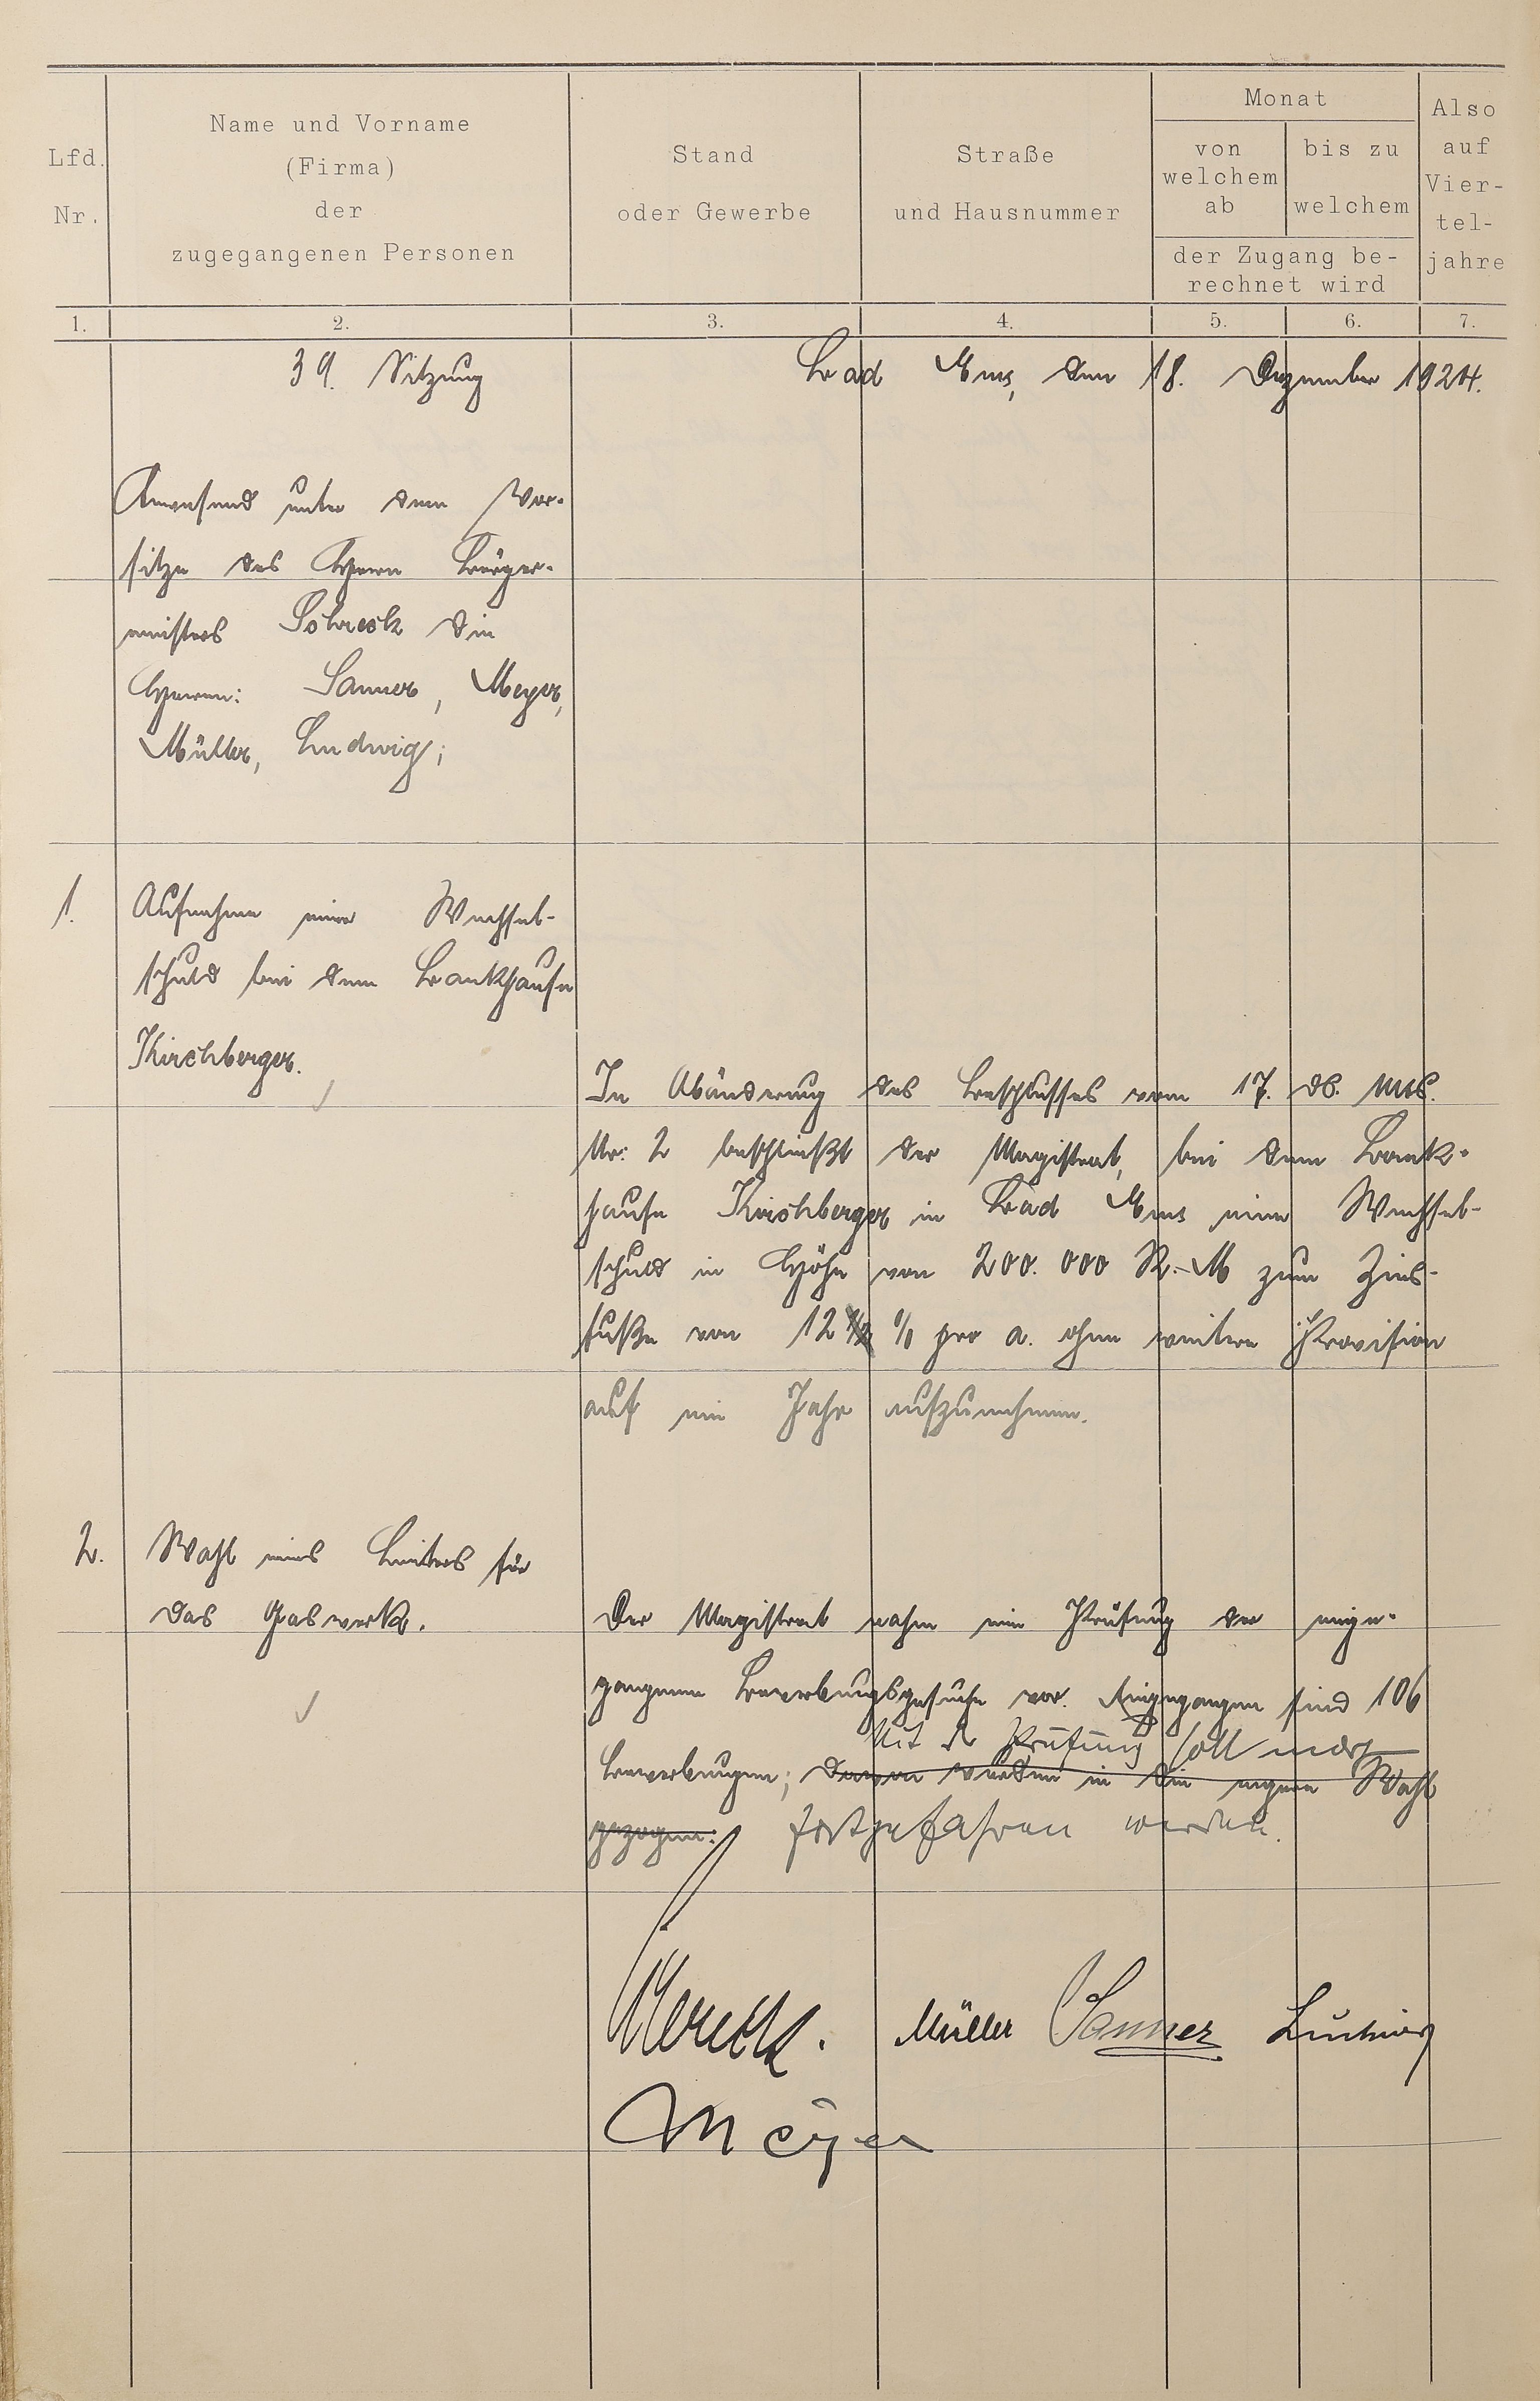 Lfd. Nr.
Name und Vorname
(Firma)
der
zugegangenen Personen
Stand
oder Gewerbe
Straße
und Hausnummer
Monat
von
welchem
ab
bis zu
welchem
der Zugang be-
rechnet wird
Also
auf
Vier-
tel-
jahre
1. 2. 3. 4. 5. 6. 7.
39. Sitzung
Bad Ems, den 18. Dezember 1924.
Anwesend unter dem Vor-
sitze des Herrn Bürger-
meisters Schreck die
Herren: Sanner, Meyer,
Müller, Ludwig;
1. Aufnahme einer Wechsel-
schuld bei dem Bankhause
Kirchberger.
In Abänderung des Beschlusses vom 17. ds. Mts.
Nr: 2 beschließt der Magistrat, bei dem Bank-
hause Kirchberger in Bad Ems eine Wechsel-
schuld in Höhe von 200.000 R.-M zum Zins-
fuße von 12 1/2 % pro a. ohne weitere Provision
auf ein Jahr aufzunehmen.
2. Wahl eines Leiters für
das Gaswerk.
Der Magistrat nahm eine Prüfung der einge-
gangenen Bewerbungsgesuche vor. Eingegangen sind 106
Mit der Prüfung soll
Bewerbungen; davon wurden in die engere Wahl
gezogen: fortgefahren werden.
Schreck. Müller Sanner Ludwig
Meyer